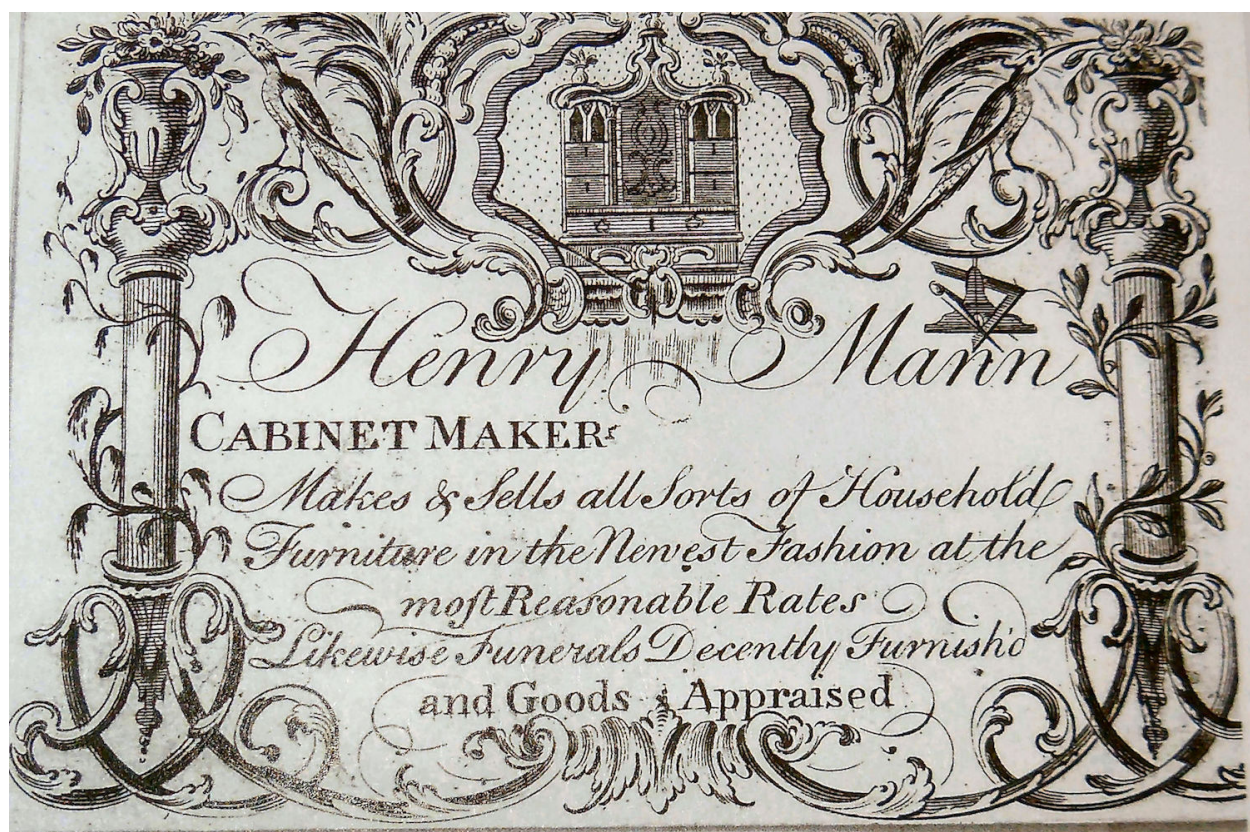 Henry Mann
CABINET MAKER
Makes & Sells all Sorts of Household
Furniture in the Newest Fashion at the
moſt Reasonable Rates
Likewise Funerals Decently Furnish'd
and Goods Appraised